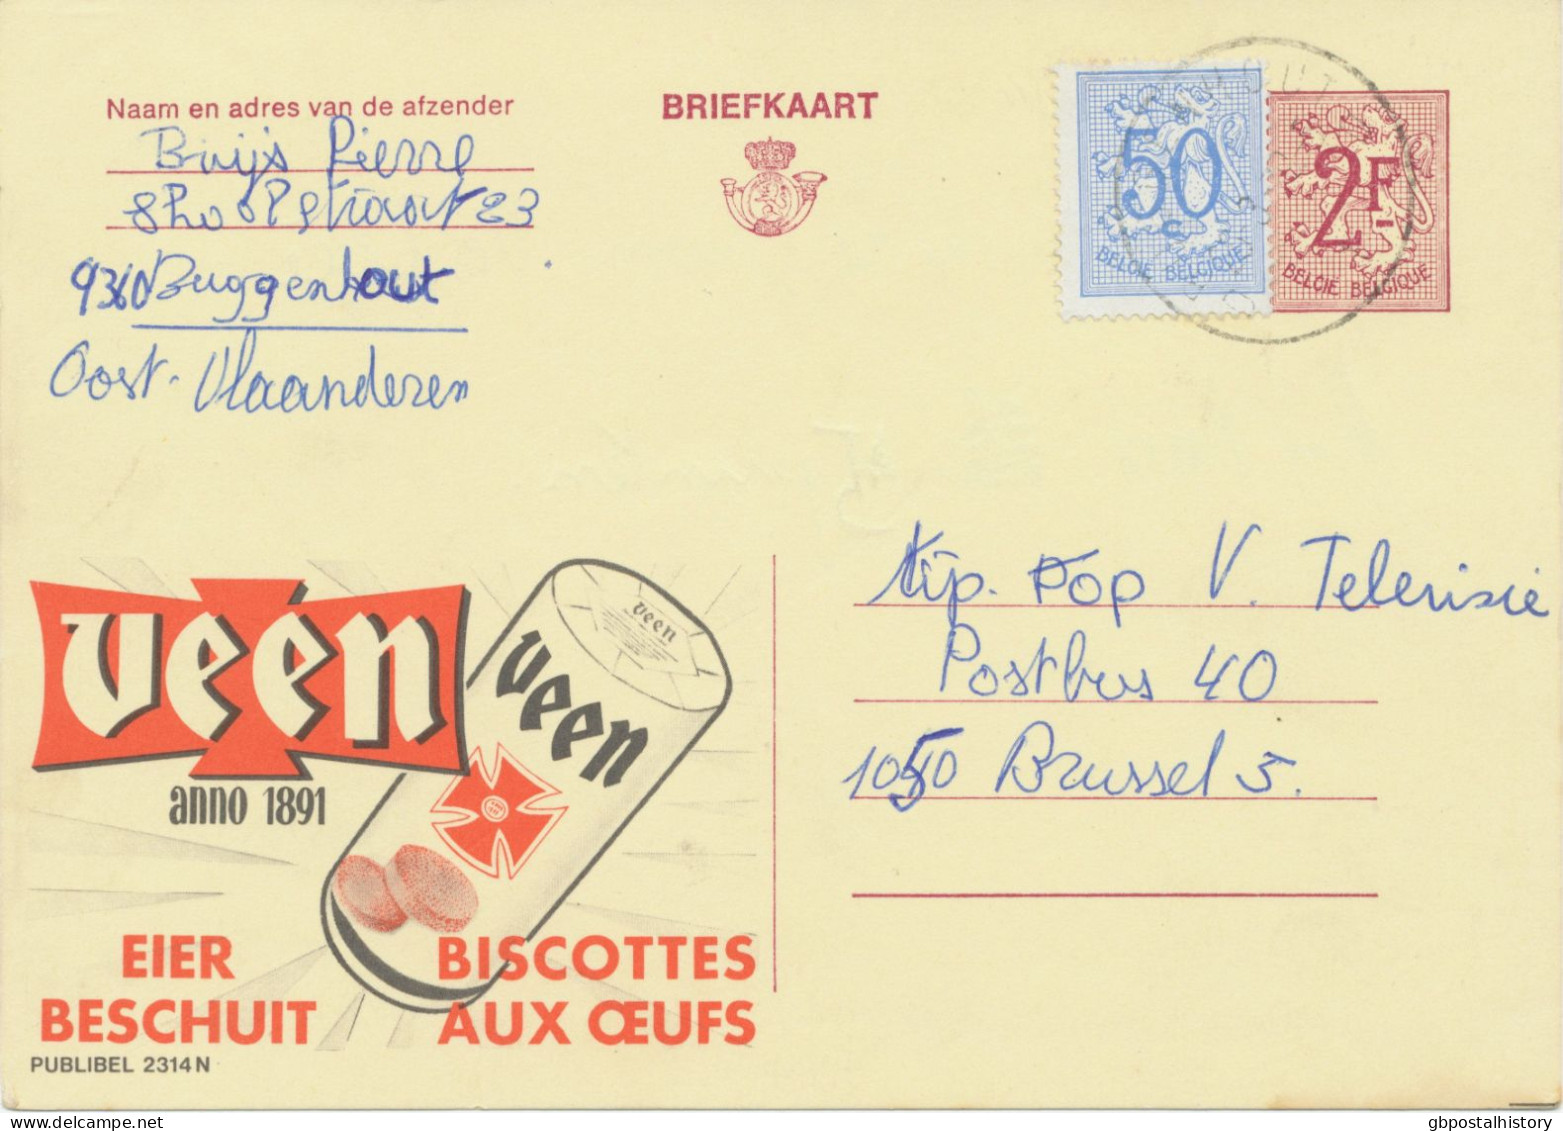 Naam en adres van de afzender
Buijs Pierre
23
9360 Buggenhout
Oost-Vlaanderen
BRIEFKAART
50
c
BELGIE BELGIQUE
2F
BELGIE BELGIQUE
tip. Top V. Televisie
Postbus 40
1050 Brussel 5.
veen
anno 1891
veen
veen
EIER
BESCHUIT
BISCOTTES
AUX ŒUFS
PUBLIBEL 2314 N
gbpostalhistory